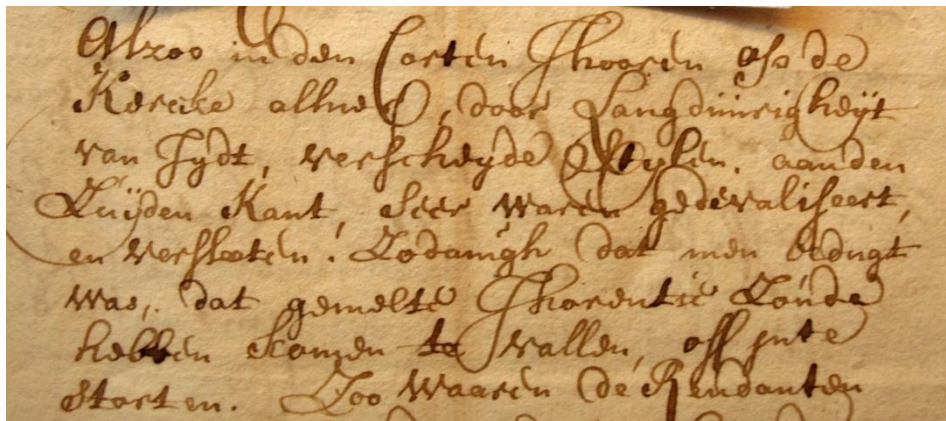 Alzoo in den Casten Thooren op de
Kercke alhier, door Langduirigheyt
van Tydt, verscheyde Stylen, aan den
Zuijden Kant, seer waren gedevaliseert,
en versleeten. Zodanigh dat men bedugt
was, dat gemelte Thorentie Zoude
hebben komen te vallen, off inte
storten. Zoo waaren de Rendanten